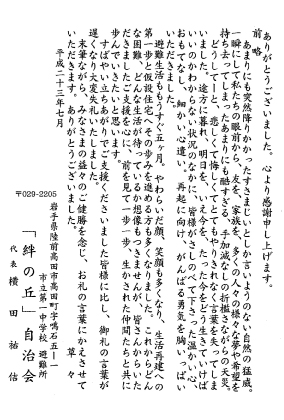 ありがとうございました。心より感謝申し上げます。
前略
あまりにも突然降りかかったすさまじいとしか言いようのない自然の猛威。
一瞬にして私たちの眼前から、友を、家族を、多くの人々の様々な夢や希望を
持ち去ってしまったあまりにも酷すぎる、手加減なしの折檻さながらの天災。
どうしてーと、悲しくて悔しくて、とてもやりきれなく言葉を失ってしま
いました。途方に暮れ、明日を、いえ今を、たった今をどう生きていけば
いいのかわからない状況のなかに、皆様がさしのべて下さった温かい心、
おもてなし、細かい心遣い。再起に向け、がんばる勇気を胸いっぱい
いただきました。
避難生活ももうすぐ五ヶ月。やわらいだ笑顔も多くなり、生活再建への
第一歩と仮設住宅へその歩みを進める方も多くなりました。これからどん
な困難、どんな生活が待っているか想像もつきませんが、皆さんからいた
だきましたご支援を心に、前を見て一歩一歩、生かされた仲間たちと共に
歩んでいきたいと思います。
すばやい立ちあがりでご支援くださいました皆様に比し、御礼の言葉が
遅くなり大変失礼いたしました。
末筆ながら、みなさまの益々のご健勝を念じ、お礼の言葉にかえさせて
いただきます。ありがとうございました。
草々
平成二十三年七月
〒029-2205
岩手県陸前高田市高田町字鳴石五十一一
市立第一中学校 避難所
「絆の丘」自治会
代表 横田祐信